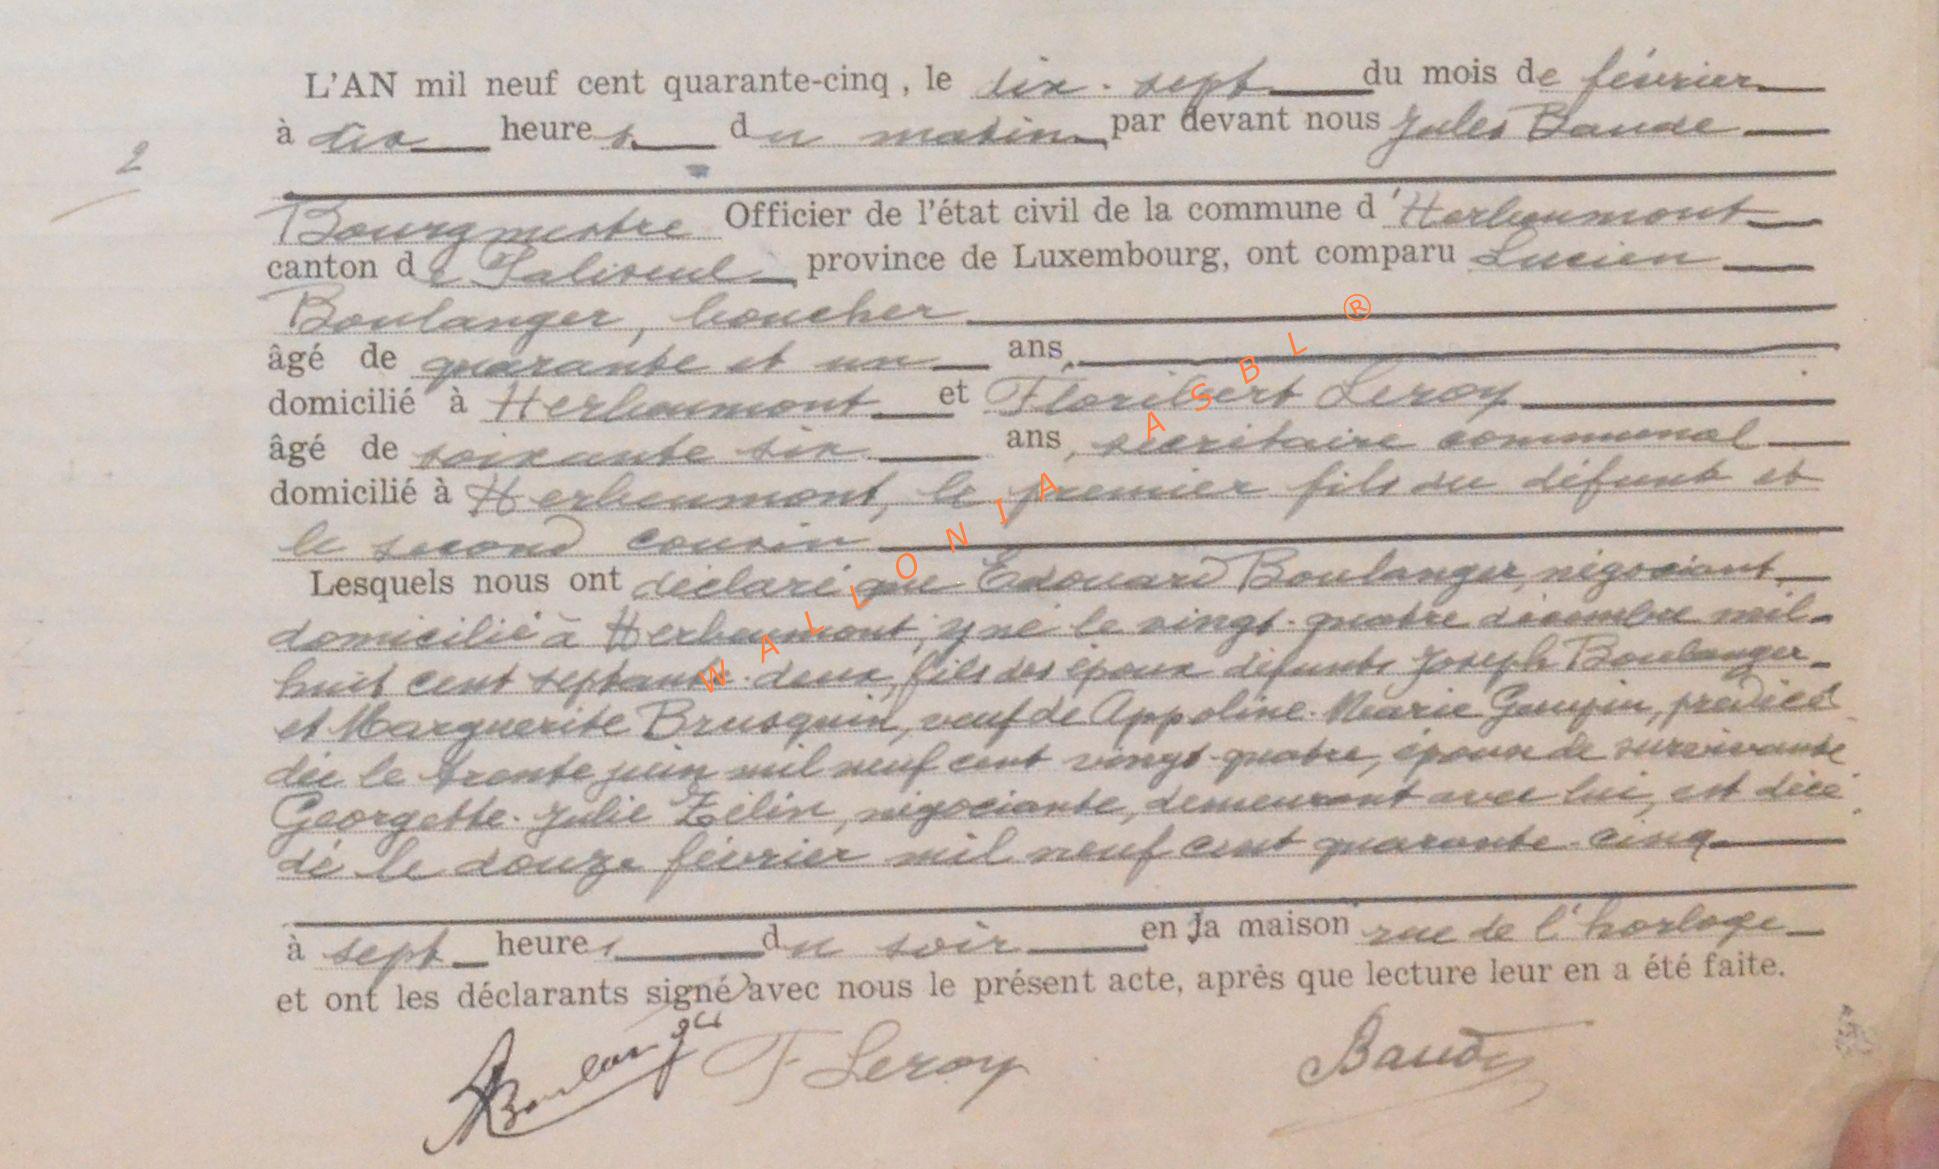 L'AN mil neuf cent quarante-cinq, le dix-sept du mois de février
2
à dix heures du matin par devant nous Jules Baude
Bourgmestre Officier de l'état civil de la commune d'Herbeumont
canton de Paliseul, province de Luxembourg, ont comparu Lucien
Boulanger, boucher
âgé de quarante et un ans,
domicilié à Herbeumont et Floribert Leroy
âgé de soixante six ans, secrétaire communal
domicilié à Herbeumont, le premier fils du défunt et
le second cousin
Lesquels nous ont déclaré que Edouard Boulanger, négociant,
domicilié à Herbeumont, y né le vingt-quatre décembre mil-
huit cent septante-deux, fils des époux défunts Joseph Boulanger
et Marguerite Brusquin, veuf de Appoline-Marie
dée le trente juin mil neuf cent vingt-quatre, époux de survivante
Georgette-Julie Zélin, négociante, demeurant avec lui, est décé
dé le douze février mil neuf cent quarante-cinq
à sept heures du soir en la maison rue de l'horloge
et ont les déclarants signé avec nous le présent acte, après que lecture leur en a été faite.
Boulanger F Leroy Baude
WALLONIA ASBL ®